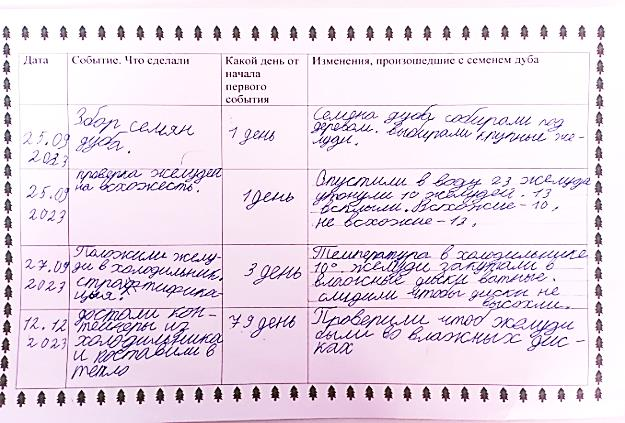 Дата
Событие. Что сделали
Какой день от
начала
первого
события
Изменения, произошедшие с семенем дуба
25.09
2023
Збор семян
дуба.
1 день
Семена дуба собирали под
деревом. выбирали крупные же-
луди.
25.09
2023
проверка желудей
на всхожесть.
1 день
Опустили в воду 23 желудя
утонули 10 желудей. 13
всплыли. Всхожие - 10,
не всхожие - 13.
27.09
2023
Положили желу-
ди в холодильник.
стратифика-
ция.
3 день
Температура в холодильнике
10° желуди закутали в
влажные диски ватные.
следили чтобы диски не
высохли.
12.12
2023
достали кон-
тейнеры из
холодильника
и поставили в
тепло
79 день
Проверили чтоб желуди
были во влажных дис-
ках